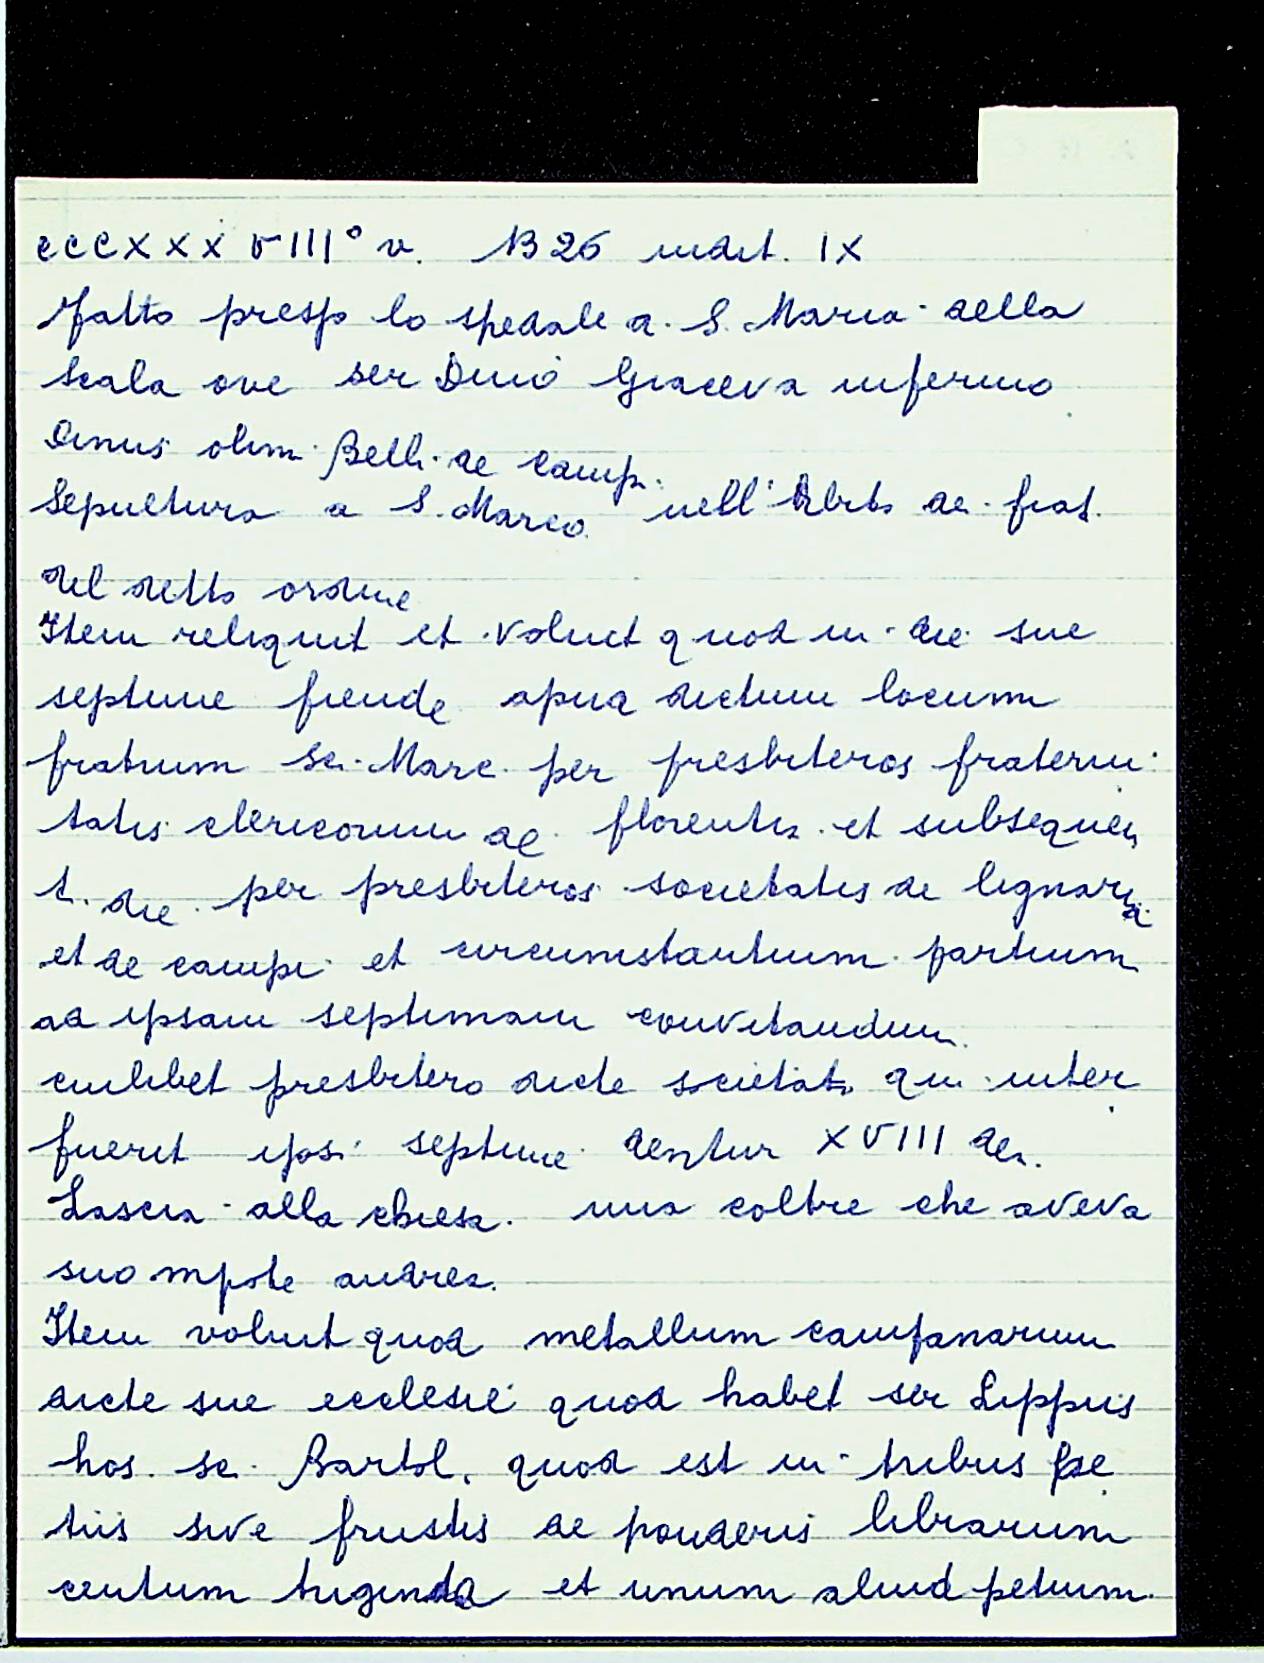 CCCXXXVIII° v. 1326 indit. IX
fatto presso lo spedale d. S. Maria della
Scala ove ser Dino Giaceva infermo
Dinus olim Belli de Camp.
Sepultura a S. Marco nell'
del detto ordine
Item reliquit et voluit quod in die sue
septime fiende apud dictum locum
fratrum Sci. Marc. per presbiteros fraterni
tatis clericorum de florentia et subsequen
t. die per presbiteros societatis de
et de campi et circumstantium partium
ad ipsam septimam convitandum.
cuilibet presbitero dicte societatis qui inter
fuerit ipsi septime dentur XVIII den.
Lascia alla chiesa una coltre che aveva
suo nipote andrea.
Item voluit quod metallum campanarum
dicte sue ecclesie quod habet ser Lippus
hos. sc. Bartol. quod est in tribus pe
tiis sive frustis de ponderis librarum
centum triginta et unum aliud petium